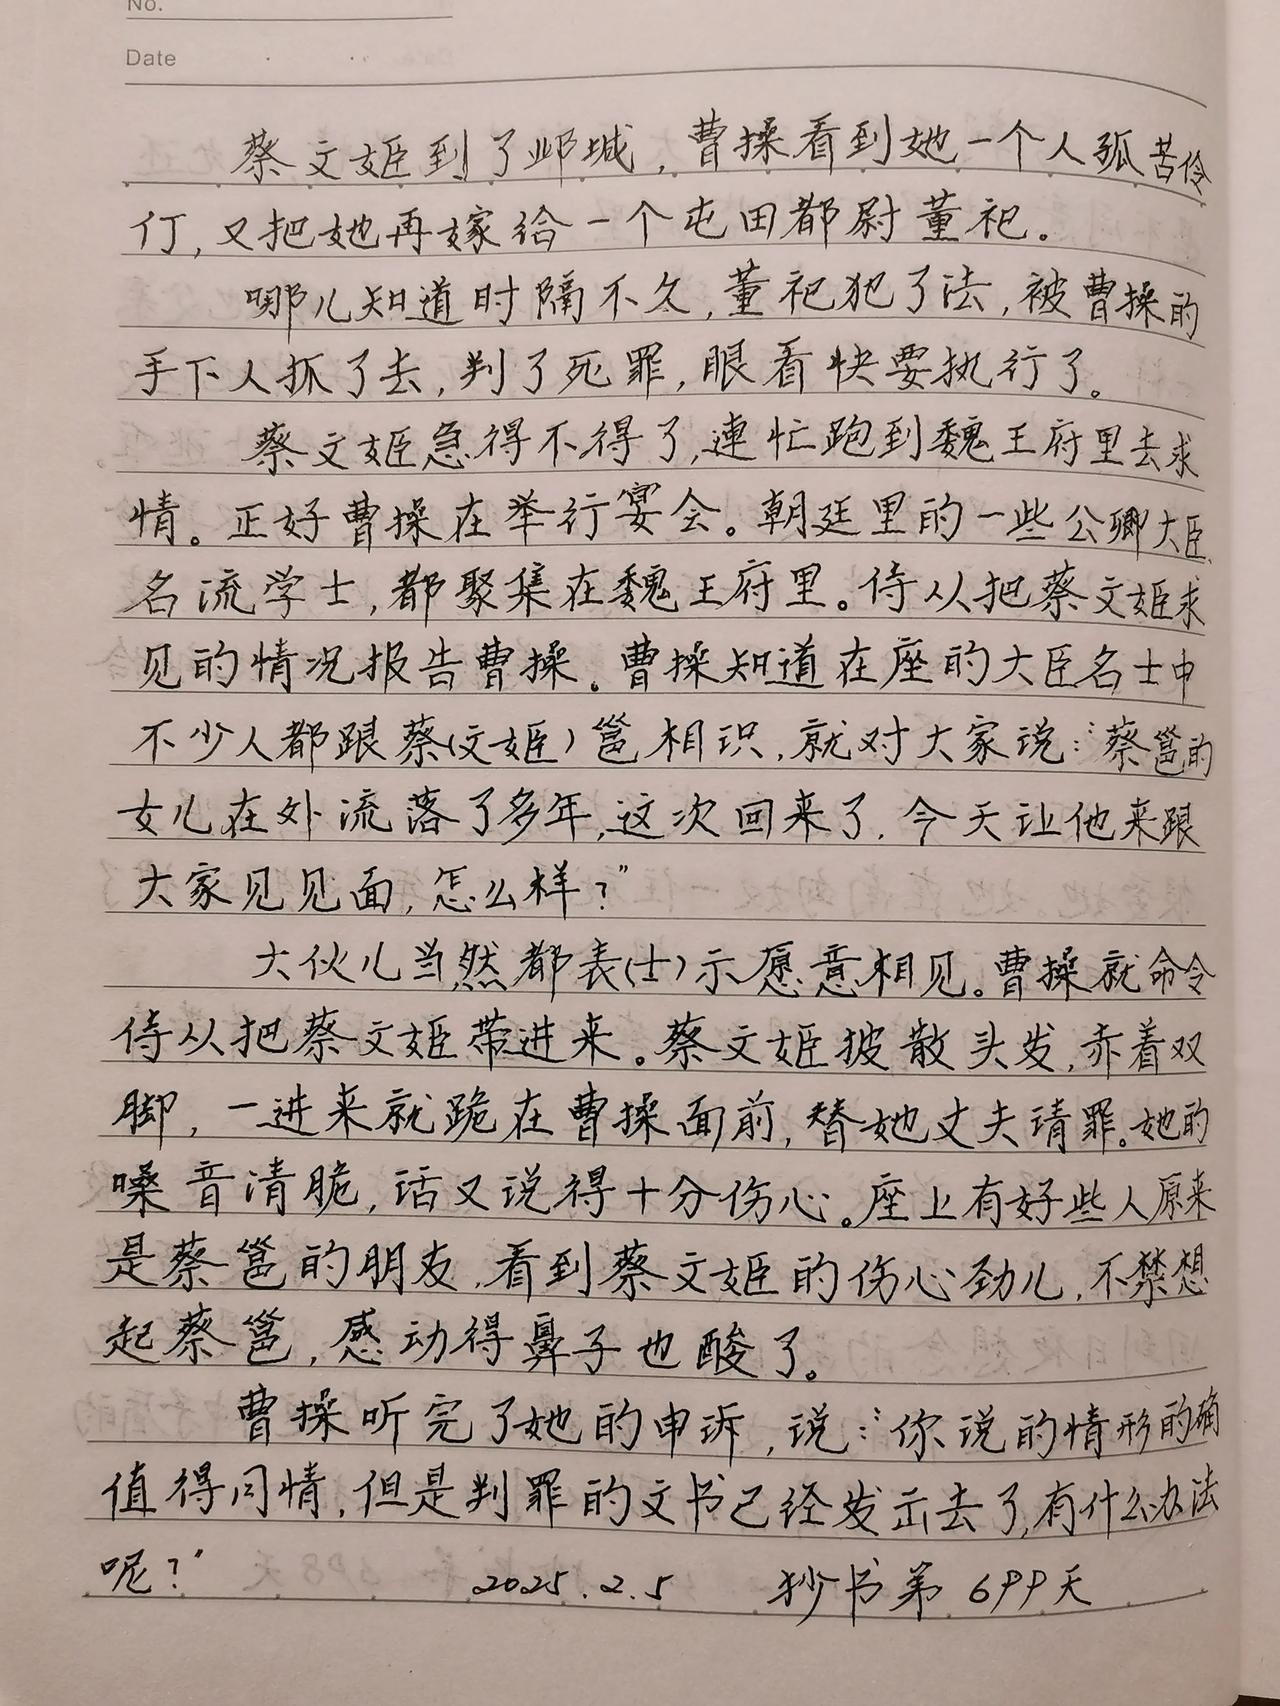 No.
Date
蔡文姬到了邺城，曹操看到她一个人孤苦伶
仃，又把她再嫁给一个屯田都尉董祀。
哪儿知道时隔不久，董祀犯了法，被曹操的
手下人抓了去，判了死罪，眼看快要执行了。
蔡文姬急得不得了，連忙跑到魏王府里去求
情。正好曹操在举行宴会。朝廷里的一些公卿大臣、
名流学士，都聚集在魏王府里。侍从把蔡文姬求
见的情况报告曹操。曹操知道在座的大臣名士中
不少人都跟蔡（文姬）邕相识，就对大家说：“蔡邕的
女儿在外流落了多年，这次回来了，今天让他来跟
大家见见面，怎么样？”
大伙儿当然都表（士）示愿意相见。曹操就命令
侍从把蔡文姬带进来。蔡文姬披散头发，赤着双
脚，一进来就跪在曹操面前，替她丈夫请罪。她的
嗓音清脆，话又说得十分伤心。座上有好些人原来
是蔡邕的朋友，看到蔡文姬的伤心劲儿，不禁想
起蔡邕，感动得鼻子也酸了。
曹操听完了她的申诉，说：“你说的情形的确
值得同情，但是判罪的文书已经发出去了，有什么办法
呢？” 2025.2.5 抄书第699天